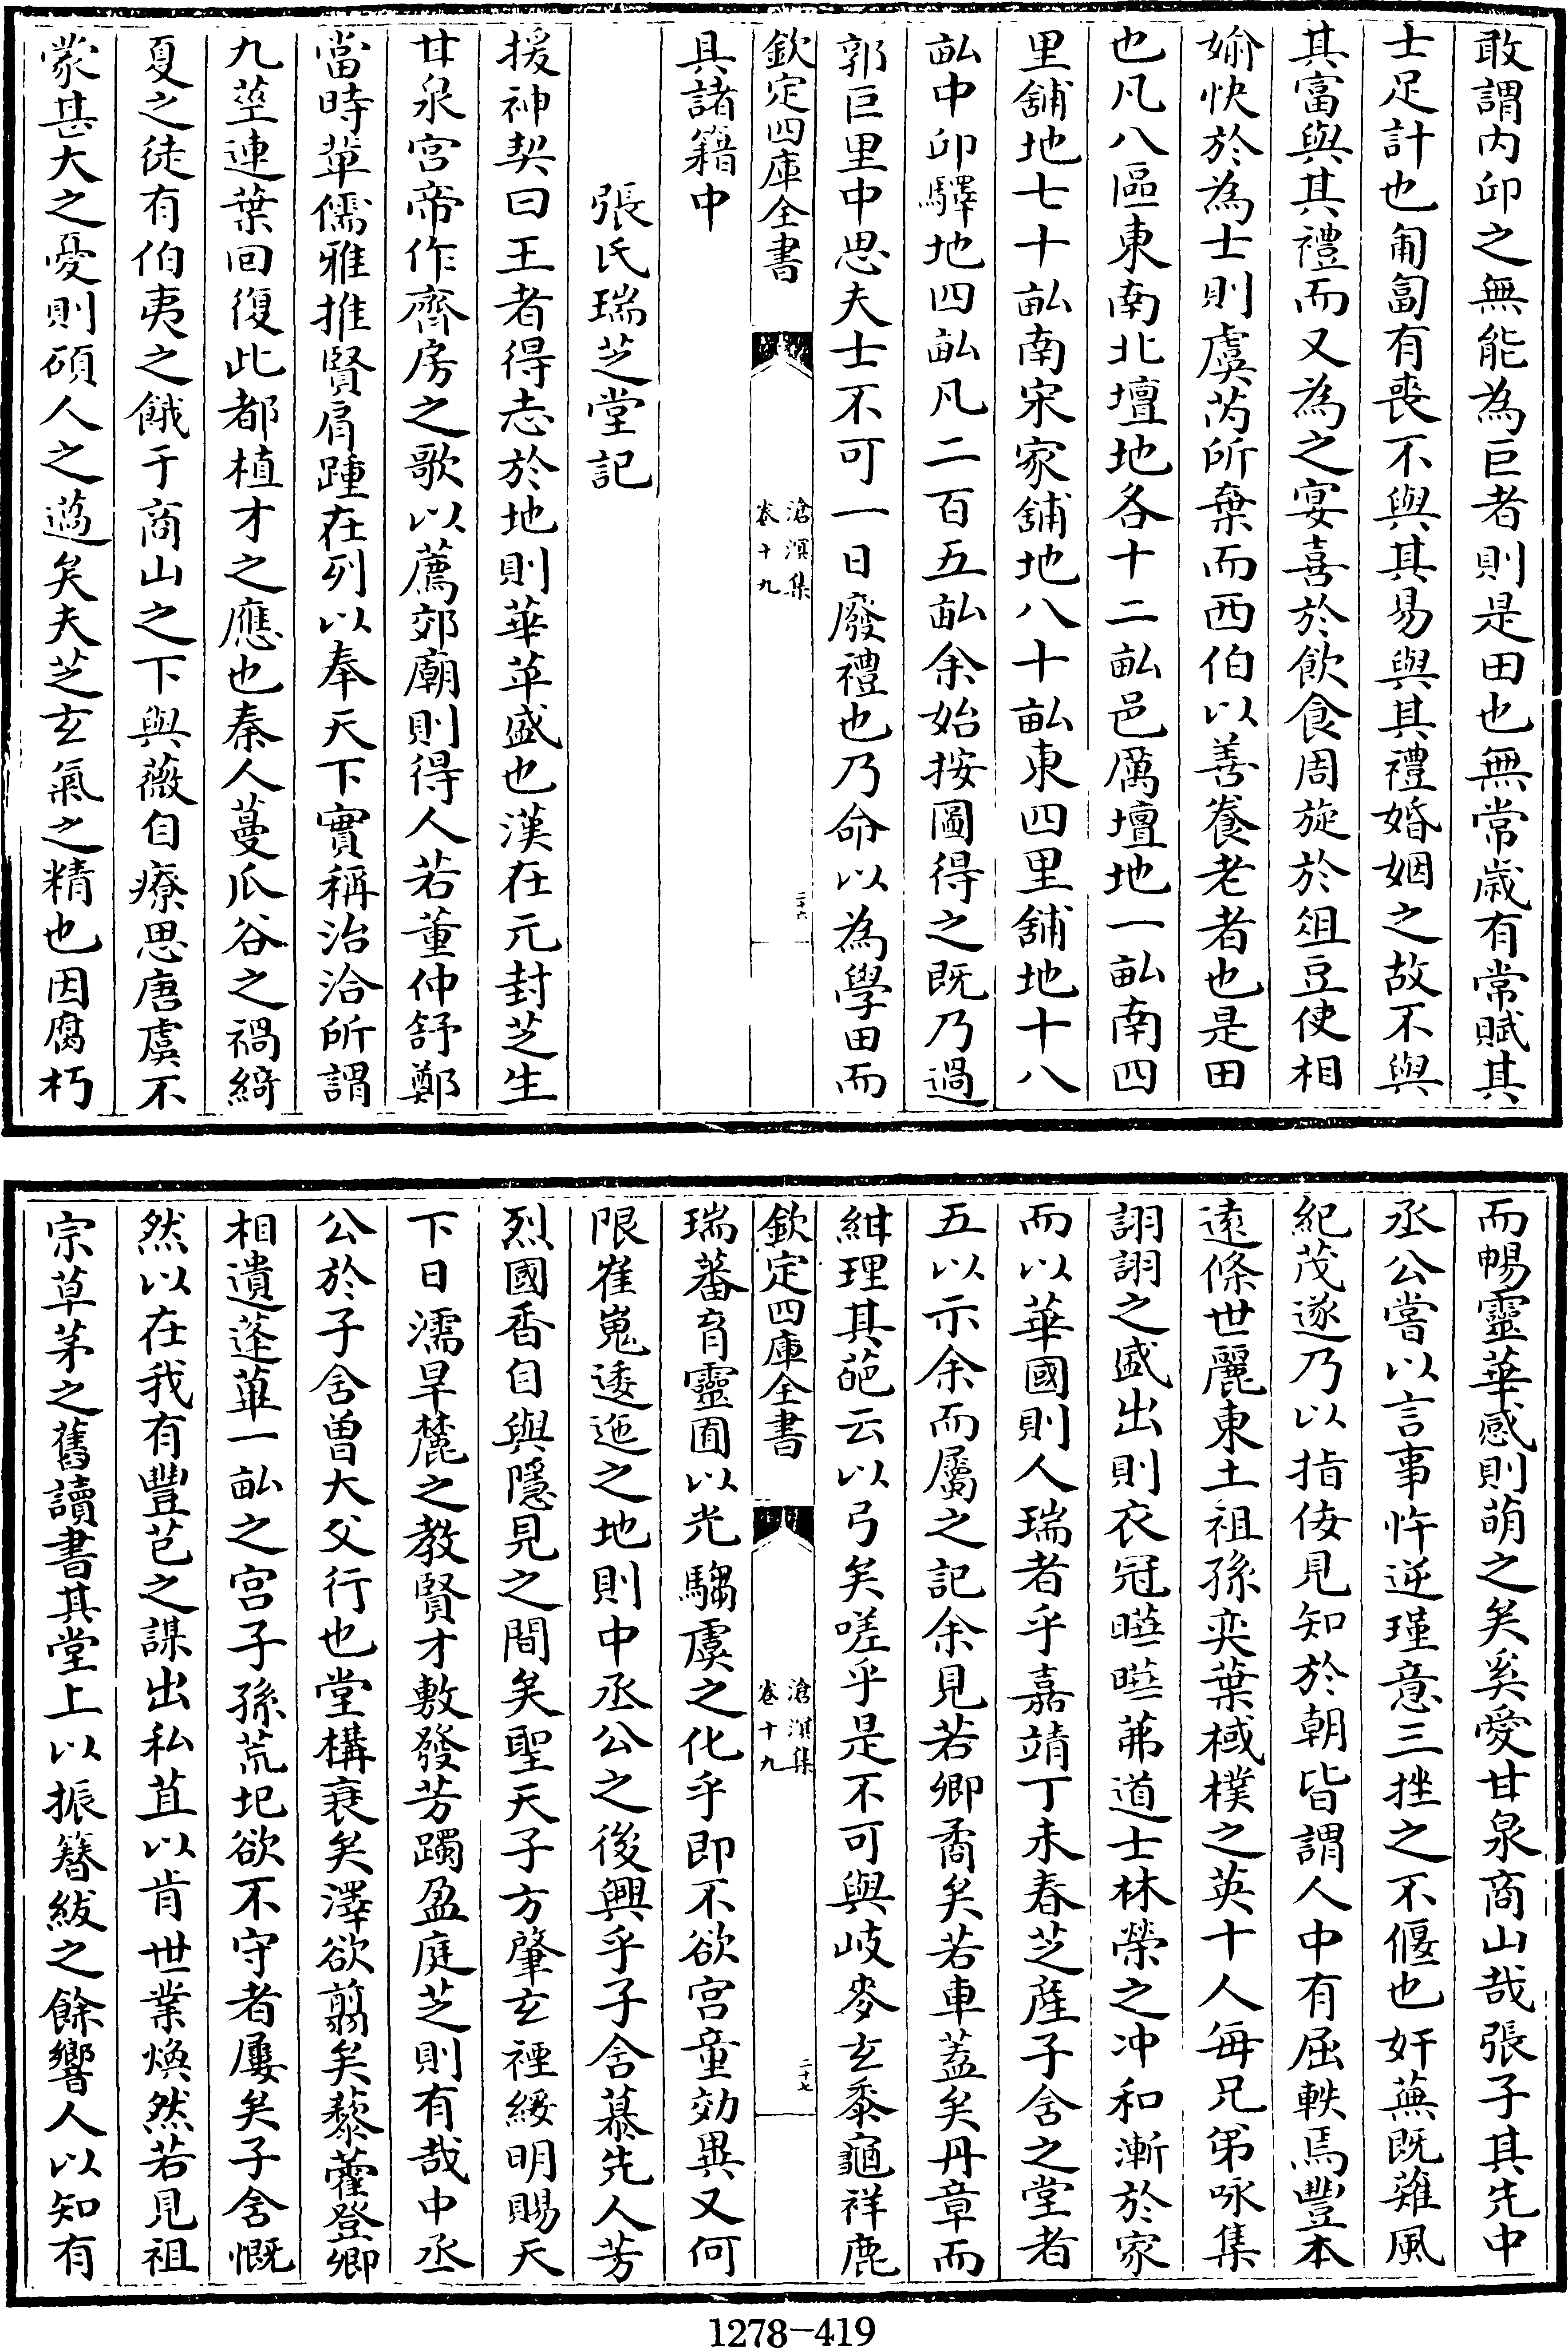 敢謂内卬之無能為巨者則是田也無常歳有常賦其
士足計也匍匐有喪不與其易與其禮婚姻之故不與
其富與其禮而又為之宴喜於飲食周旋於俎豆使相
婾快於為士則虞芮所棄而西伯以善養老者也是田
也凡八區東南北壇地各十二畝邑厲壇地一畝南四
里舖地七十畝南宋家舖地八十畝東四里舖地十八
畝中卬驛地四畝凡二百五畝余始按圖得之既乃過
郭巨里中思夫士不可一日廢禮也乃命以為學田而
欽定四庫全書
滄溟集
卷十九
二十六
具諸籍中
張氏瑞芝堂記
援神契曰王者得志於地則華苹盛也漢在元封芝生
甘泉宫帝作齊房之歌以薦郊廟則得人若董仲舒鄭
當時輩儒雅推賢肩踵在列以奉天下實稱治洽所謂
九莖連葉回復此都植才之應也秦人蔓瓜谷之禍綺
夏之徒有伯夷之餓于商山之下與薇自療思唐虞不
蒙甚大之憂則碩人之薖矣夫芝玄氣之精也因腐朽
而暢靈華感則萌之矣奚愛甘泉商山哉張子其先中
丞公嘗以言事忤逆瑾意三挫之不偃也奸蕪既薙風
紀茂遂乃以指佞見知於朝皆謂人中有屈軼焉豐本
遠條世麗東土祖孫奕葉棫樸之英十人每兄弟咏集
詡詡之盛出則衣冠曄曄茀道士林榮之冲和漸於家
而以華國則人瑞者乎嘉靖丁未春芝産子舍之堂者
五以示余而屬之記余見若卿矞矣若車蓋矣丹章而
紺理其葩云以弓矣嗟乎是不可與岐麥玄黍龜祥鹿
欽定四庫全書
滄溟集
卷十九
二十七
瑞蕃育靈囿以光騶虞之化乎即不欲宫童効異又何
限崔嵬逶迤之地則中丞公之後興乎子舍慕先人芳
烈國香自與隱見之間矣聖天子方肇玄禋綏明賜天
下日濡旱麓之教賢才敷發芳躅盈庭芝則有哉中丞
公於子舍曽大父行也堂構衰矣澤欲翦矣藜藿登卿
相遺蓬蓽一畝之宫子孫荒圯欲不守者屢矣子舍慨
然以在我有豐芑之謀出私苴以肯世業煥然若見祖
宗草茅之舊讀書其堂上以振簪紱之餘響人以知有
1278—419